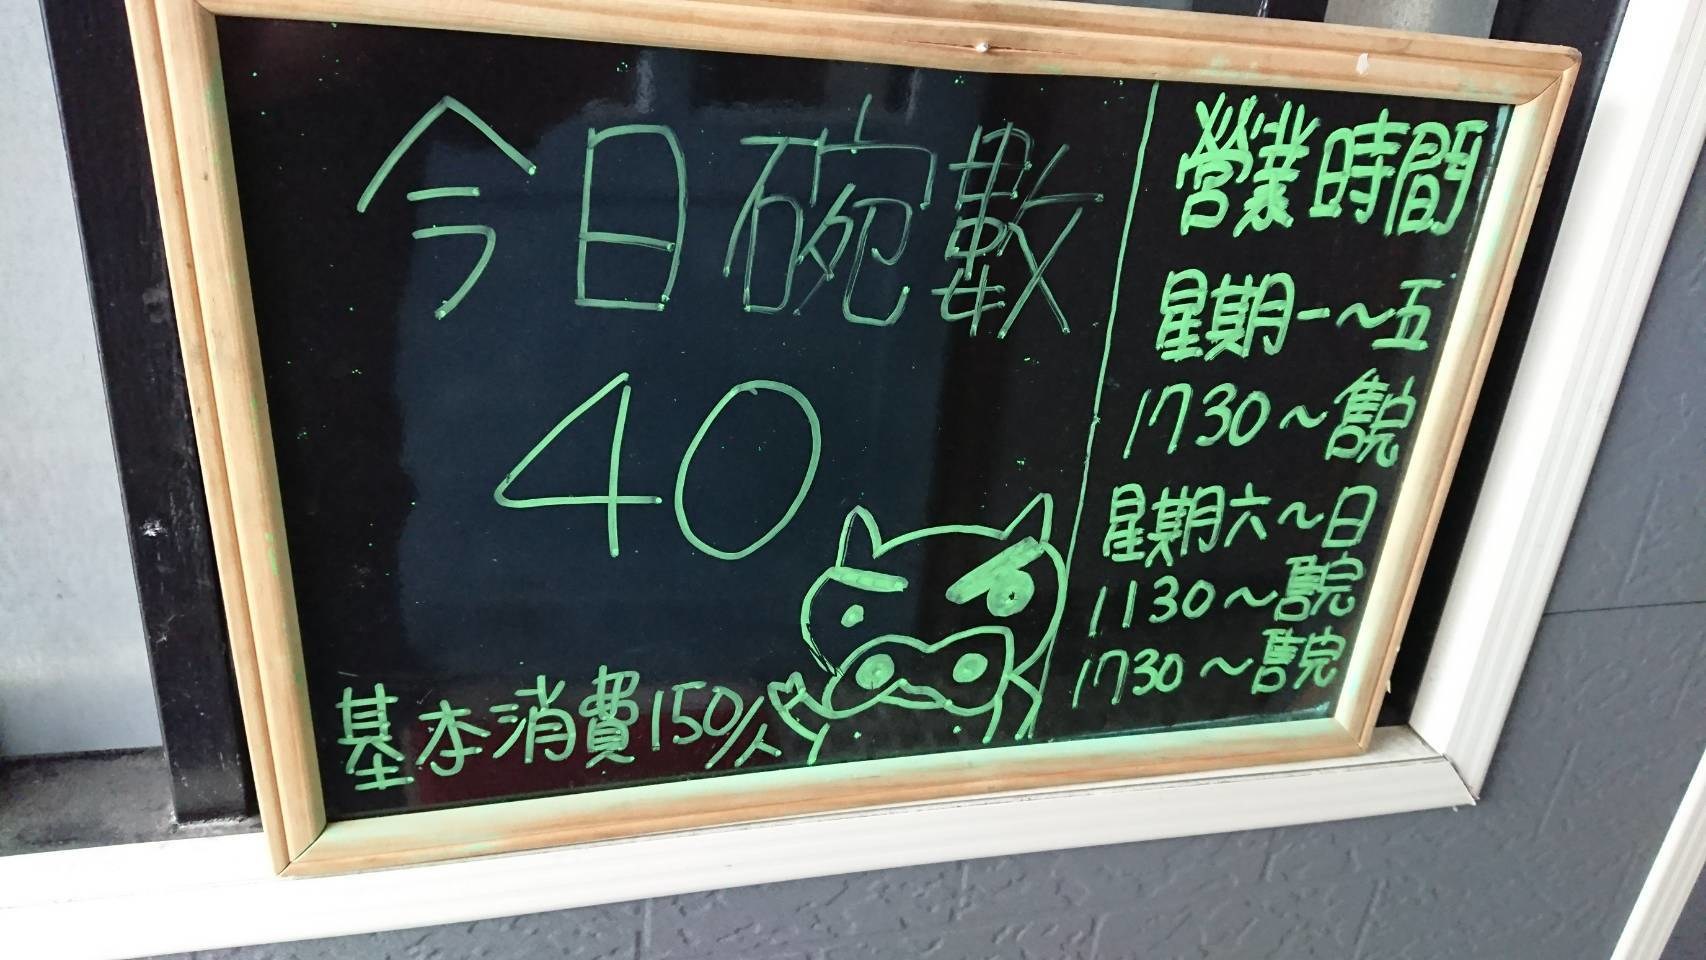 今日碗數
40
基本消費150/人
營業時間
星期一～五
1730～售完
星期六～日
1130～售完
1730～售完